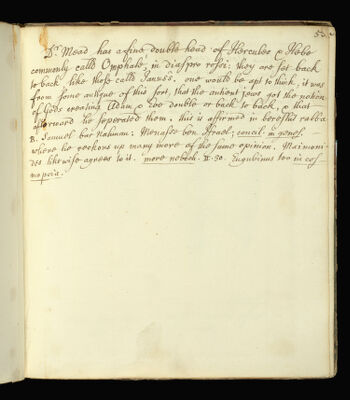 50
Dr. Mead has a fine double head of Hercules & Hebe
commonly calld Omphale, in diaspro rosso: they are set back
to back like those calld Januss. one would be apt to think, it was
from some antique of this sort, that the antient jews got the notion
of Gods creating Adam & Eve double or back to back, & that
afterward he seperated them. this is affirmed in bereshit rabba
R. Samuel bar Nahman. Menasse ben Israel, concil. in genes.
where he reckons up many more of the same opinion. Maimoni-
des likewise agrees to it. more neboch. II. 30. Eugubinus too in cos-
mopeia.